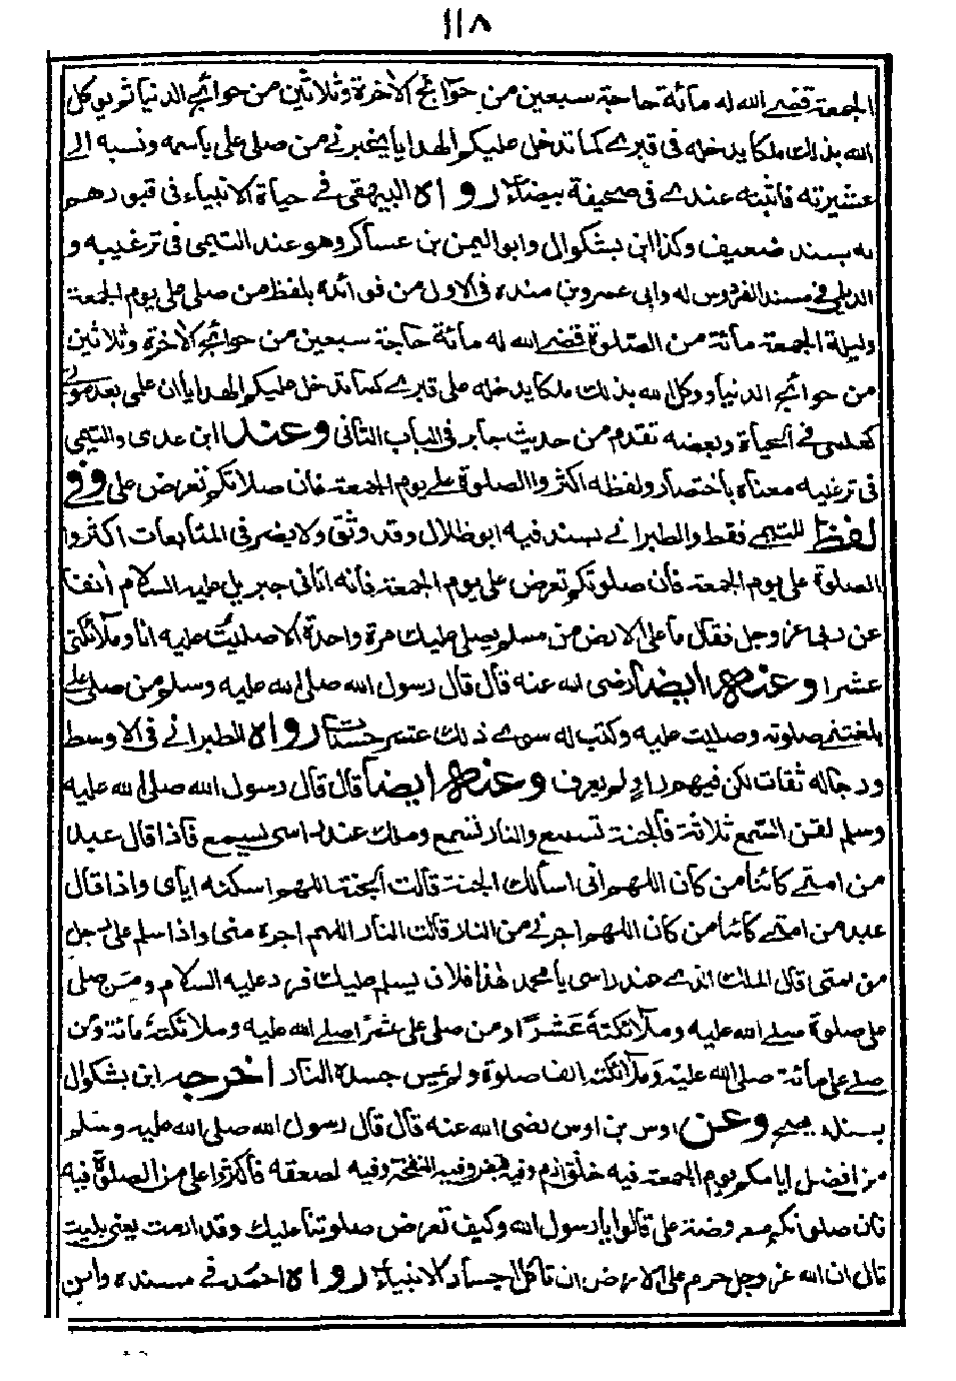 ١١٨
الجمعة قضى الله له مائة حاجة سبعين من حوائج الاخرة وثلاثين من حوائج الدنيا ثم يوكل
الله بذلك ملكا يدخله فى قبرى كما تدخل عليكم الهدايا يخبرنى من صلى على باسمه ونسبه الى
عشيرته فاثبته عندى فى صحيفة بيضاء رواه البيهقى فى حياة الانبياء فى قبورهم
له بسند ضعيف وكذا ابن بشكوال وابو اليمن بن عساكر وهو عند التيمى فى ترغيبه و
الديلمى فى مسند الفردوس له وابى عمرو بن منده فى الاول من فوائده بلفظ من صلى على يوم الجمعة
وليلة الجمعة مائة من الصلوة قضى الله له مائة حاجة سبعين من حوائج الاخرة وثلاثين
من حوائج الدنيا ووكل الله بذلك ملكا يدخله على قبرى كما تدخل عليكم الهدايا ان علمى بعد موتى
كعلمى فى الحياة وبعضه تقدم من حديث جابر فى الباب الثانى وعند ابن عدى والتيمى
فى ترغيبه معناه باختصار ولفظه اكثروا الصلوة على يوم الجمعة فان صلاتكم تعرض على وفى
لفظ للتيمى فقط والطبرانى بسند فيه ابو ظلال وقد وثق ولا يضر فى المتابعات اكثروا
الصلوة على يوم الجمعة فان صلوتكم تعرض على يوم الجمعة فانه اتانى جبريل عليه السلام آنفا
عن ربى عز وجل فقال ما على الارض من مسلم يصلى عليك مرة واحدة الا صليت عليه انا وملائكتى
عشرا وعنه ايضا رضى الله عنه قال قال رسول الله صلى الله عليه وسلم من صلى على
بلغتنى صلوته وصليت عليه وكتب له سوى ذلك عشر حسنات رواه الطبرانى فى الاوسط
ورجاله ثقات لكن فيهم راو لم يعرف وعنه ايضا قال قال رسول الله صلى الله عليه
وسلم لقن السمع ثلاثة فالجنة تسمع والنار تسمع وملك عند راسى يسمع فاذا قال عبد
من امتى كائنا من كان اللهم انى اسألك الجنة قالت الجنة اللهم اسكنه اياى واذا قال
عبد من امتى كائنا من كان اللهم اجرنى من النار قالت النار اللهم اجره منى واذا سلم على رجل
من امتى قال الملك الذى عند راسى يا محمد هذا فلان يسلم عليك فرد عليه السلام ومن صلى
على صلوة صلى الله عليه وملائكته عشرا ومن صلى على عشرا صلى الله عليه وملائكته مائة ومن
صلى على مائة صلى الله عليه وملائكته الف صلوة ولم يمس جسده النار اخرجه ابن بشكوال
بسند وعن اوس بن اوس رضى الله عنه قال قال رسول الله صلى الله عليه وسلم
من افضل ايامكم يوم الجمعة فيه خلق آدم وفيه قبض وفيه النفخة وفيه الصعقة فاكثروا على من الصلوة فيه
فان صلوتكم معروضة على قالوا يا رسول الله وكيف تعرض صلوتنا عليك وقد ارمت يعنى بليت
قال ان الله عز وجل حرم على الارض ان تاكل اجساد الانبياء رواه احمد فى مسنده وابن